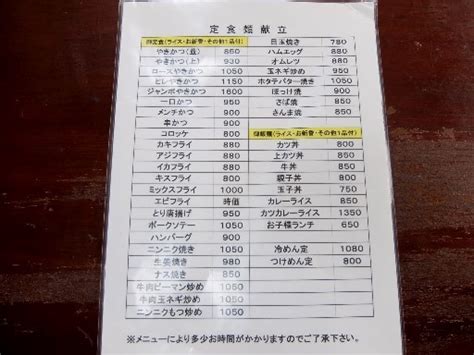 定食類献立
御定食(ライス・お新香・その他1品付)
やきかつ(並) 850
やきかつ(上) 930
ロースやきかつ 1050
ヒレやきかつ 1050
ジャンボやきかつ 1600
一口かつ 950
メンチかつ 900
串かつ 900
コロッケ 800
カキフライ 800
アジフライ 800
イカフライ 800
キスフライ 800
ミックスフライ 1000
エビフライ 時価
とり唐揚げ 950
ポークソテー 1050
ハンバーグ 900
ニンニク焼き 1050
生姜焼き 980
ナス焼き 850
牛肉ピーマン炒め 1050
牛肉玉ネギ炒め 1050
ニンニクもつ炒め 1050
目玉焼き 780
ハムエッグ 880
オムレツ 880
玉ネギ炒め 950
ホタテバター焼き 1050
ほっけ焼 900
さば焼 850
さんま焼 850
御飯類(ライス・お新香・その他1品付)
カツ丼 800
上カツ丼 850
牛丼 850
親子丼 800
玉子丼 750
カレーライス 850
カツカレーライス 1350
お子様ランチ 650
冷めん定 1080
つけめん定 800
※メニューにより多少お時間がかかりますのでご了承下さい。